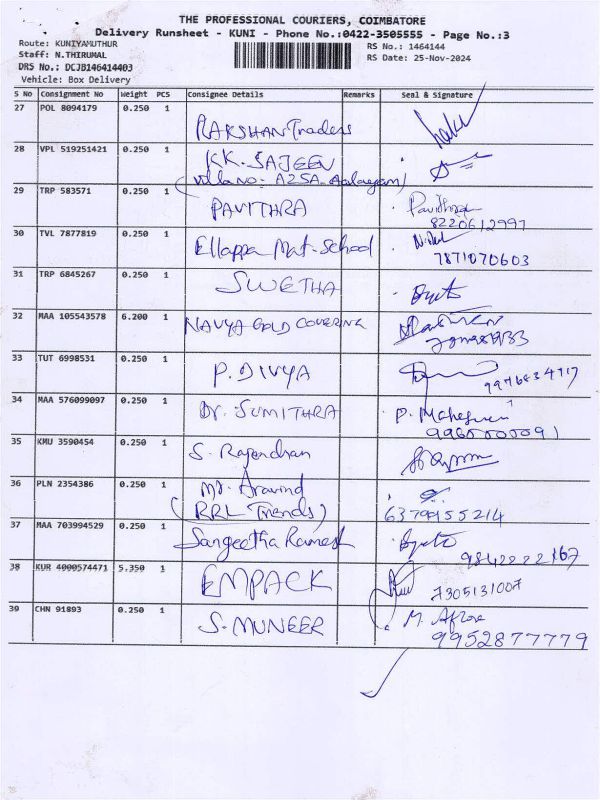 THE PROFESSIONAL COURIERS, COIMBATORE
Delivery Runsheet - KUNI - Phone No.:0422-3505555 - Page No.:3
Route: KUNIYAMUTHUR
RS No.: 1464144
Staff: N.THIRUMAL
RS Date: 25-Nov-2024
DRS No.: DCJB146414403
Vehicle: Box Delivery
S No Consignment No Weight PCS Consignee Details Remarks Seal & Signature
27 POL 8094179 0.250 1
RAKSHAN Traders
28 VPL 519251421 0.250 1
KK. SAJEEV
(Villa No: A25A. Aalayam)
29 TRP 583571 0.250 1
PAVITHRA
Pavithra
8220612997
30 TVL 7877819 0.250 1
Ellappa Mat. School
7871070603
31 TRP 6845267 0.250 1
SWETHA
32 MAA 105543578 6.200 1
NAVYA GOLD COVERING
33 TUT 6998531 0.250 1
P. DIVYA
34 MAA 576099097 0.250 1
Dr. SUMITHRA
P. Maheswari
35 KMU 3590454 0.250 1
S. Rajendran
36 PLN 2354386 0.250 1
Mr. Aravind
(RRL Trends)
6379455214
37 MAA 703994529 0.250 1
Sangeetha Ramesh
9842222167
38 KUR 4000574471 5.350 1
EMPACK
7305131007
39 CHN 91893 0.250 1
S. MUNEER
9952877779